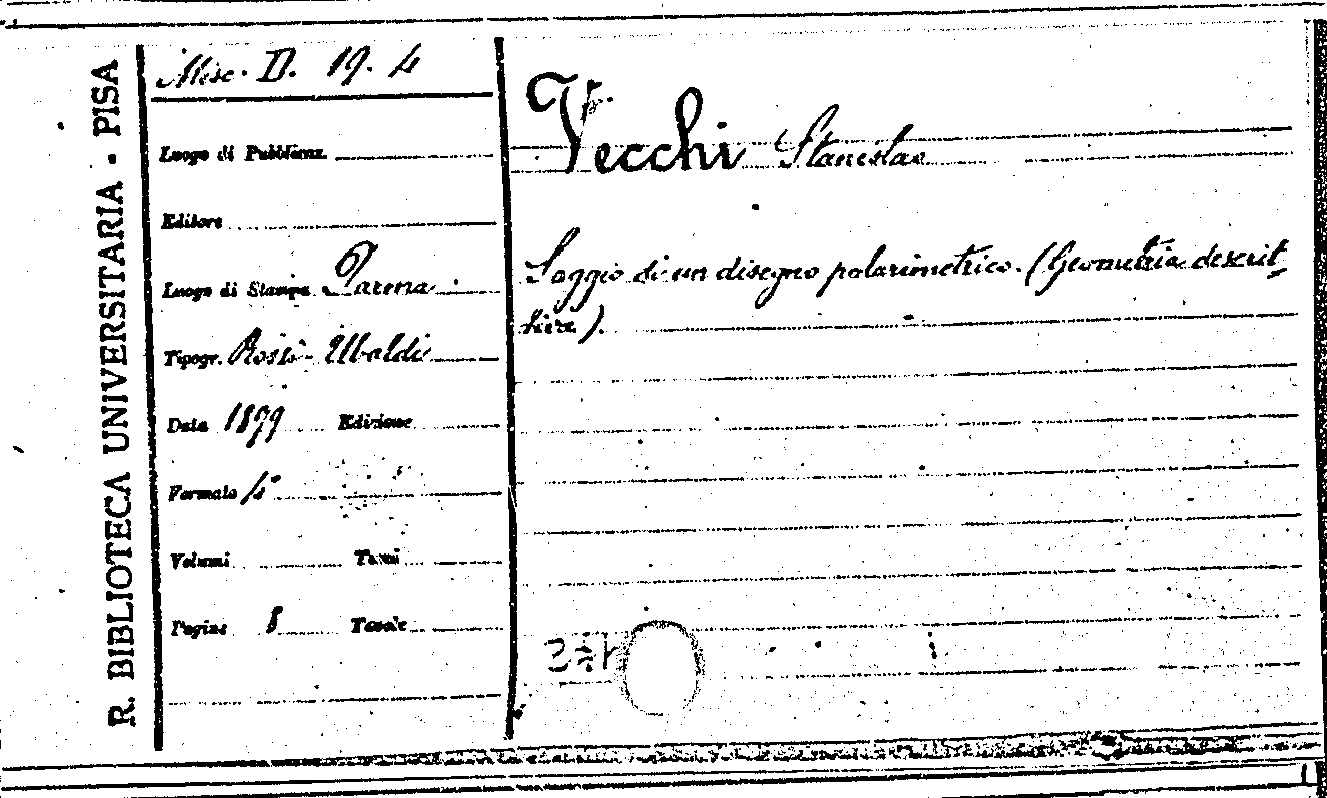 R. BIBLIOTECA UNIVERSITARIA - PISA
Misc. D. 19. 4
Luogo di Pubblicaz.
Editore
Luogo di Stampa Parma
Tipogr. Rossi-Ubaldi
Data 1899 Edizione
Formato 4°
Volumi Tomi
Pagine 8 Tavole
Vecchi Stanislao
Saggio di un disegno polarimetrico. (Geometria descrit-
tiva).